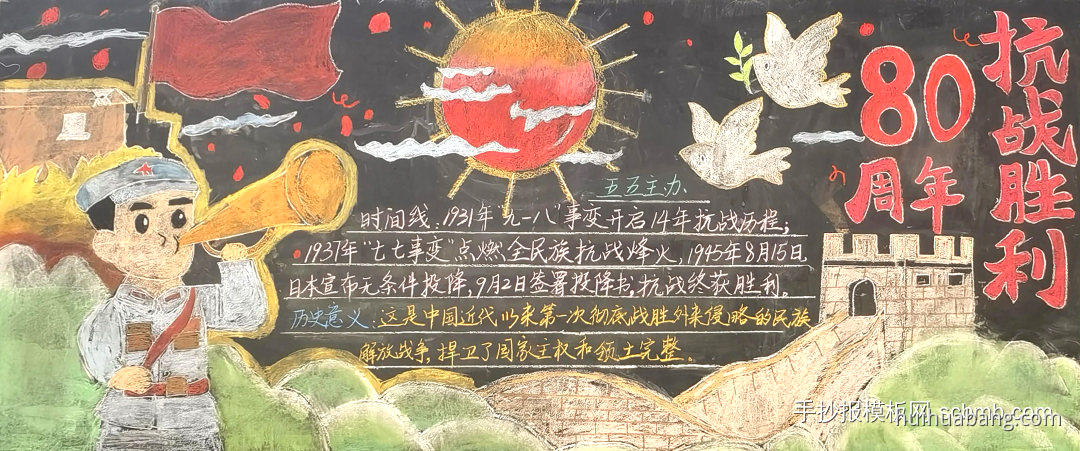 抗战胜利
80
周年
五五主办
时间线:1931年“九一八”事变开启14年抗战历程;
1937年“七七事变”点燃全民族抗战烽火,1945年8月15日
日本宣布无条件投降,9月2日签署投降书,抗战终获胜利。
历史意义:这是中国近代以来第一次彻底战胜外来侵略的民族
解放战争,捍卫了国家主权和领土完整。
手抄报模板网 scbmb.com
huihuabang.com